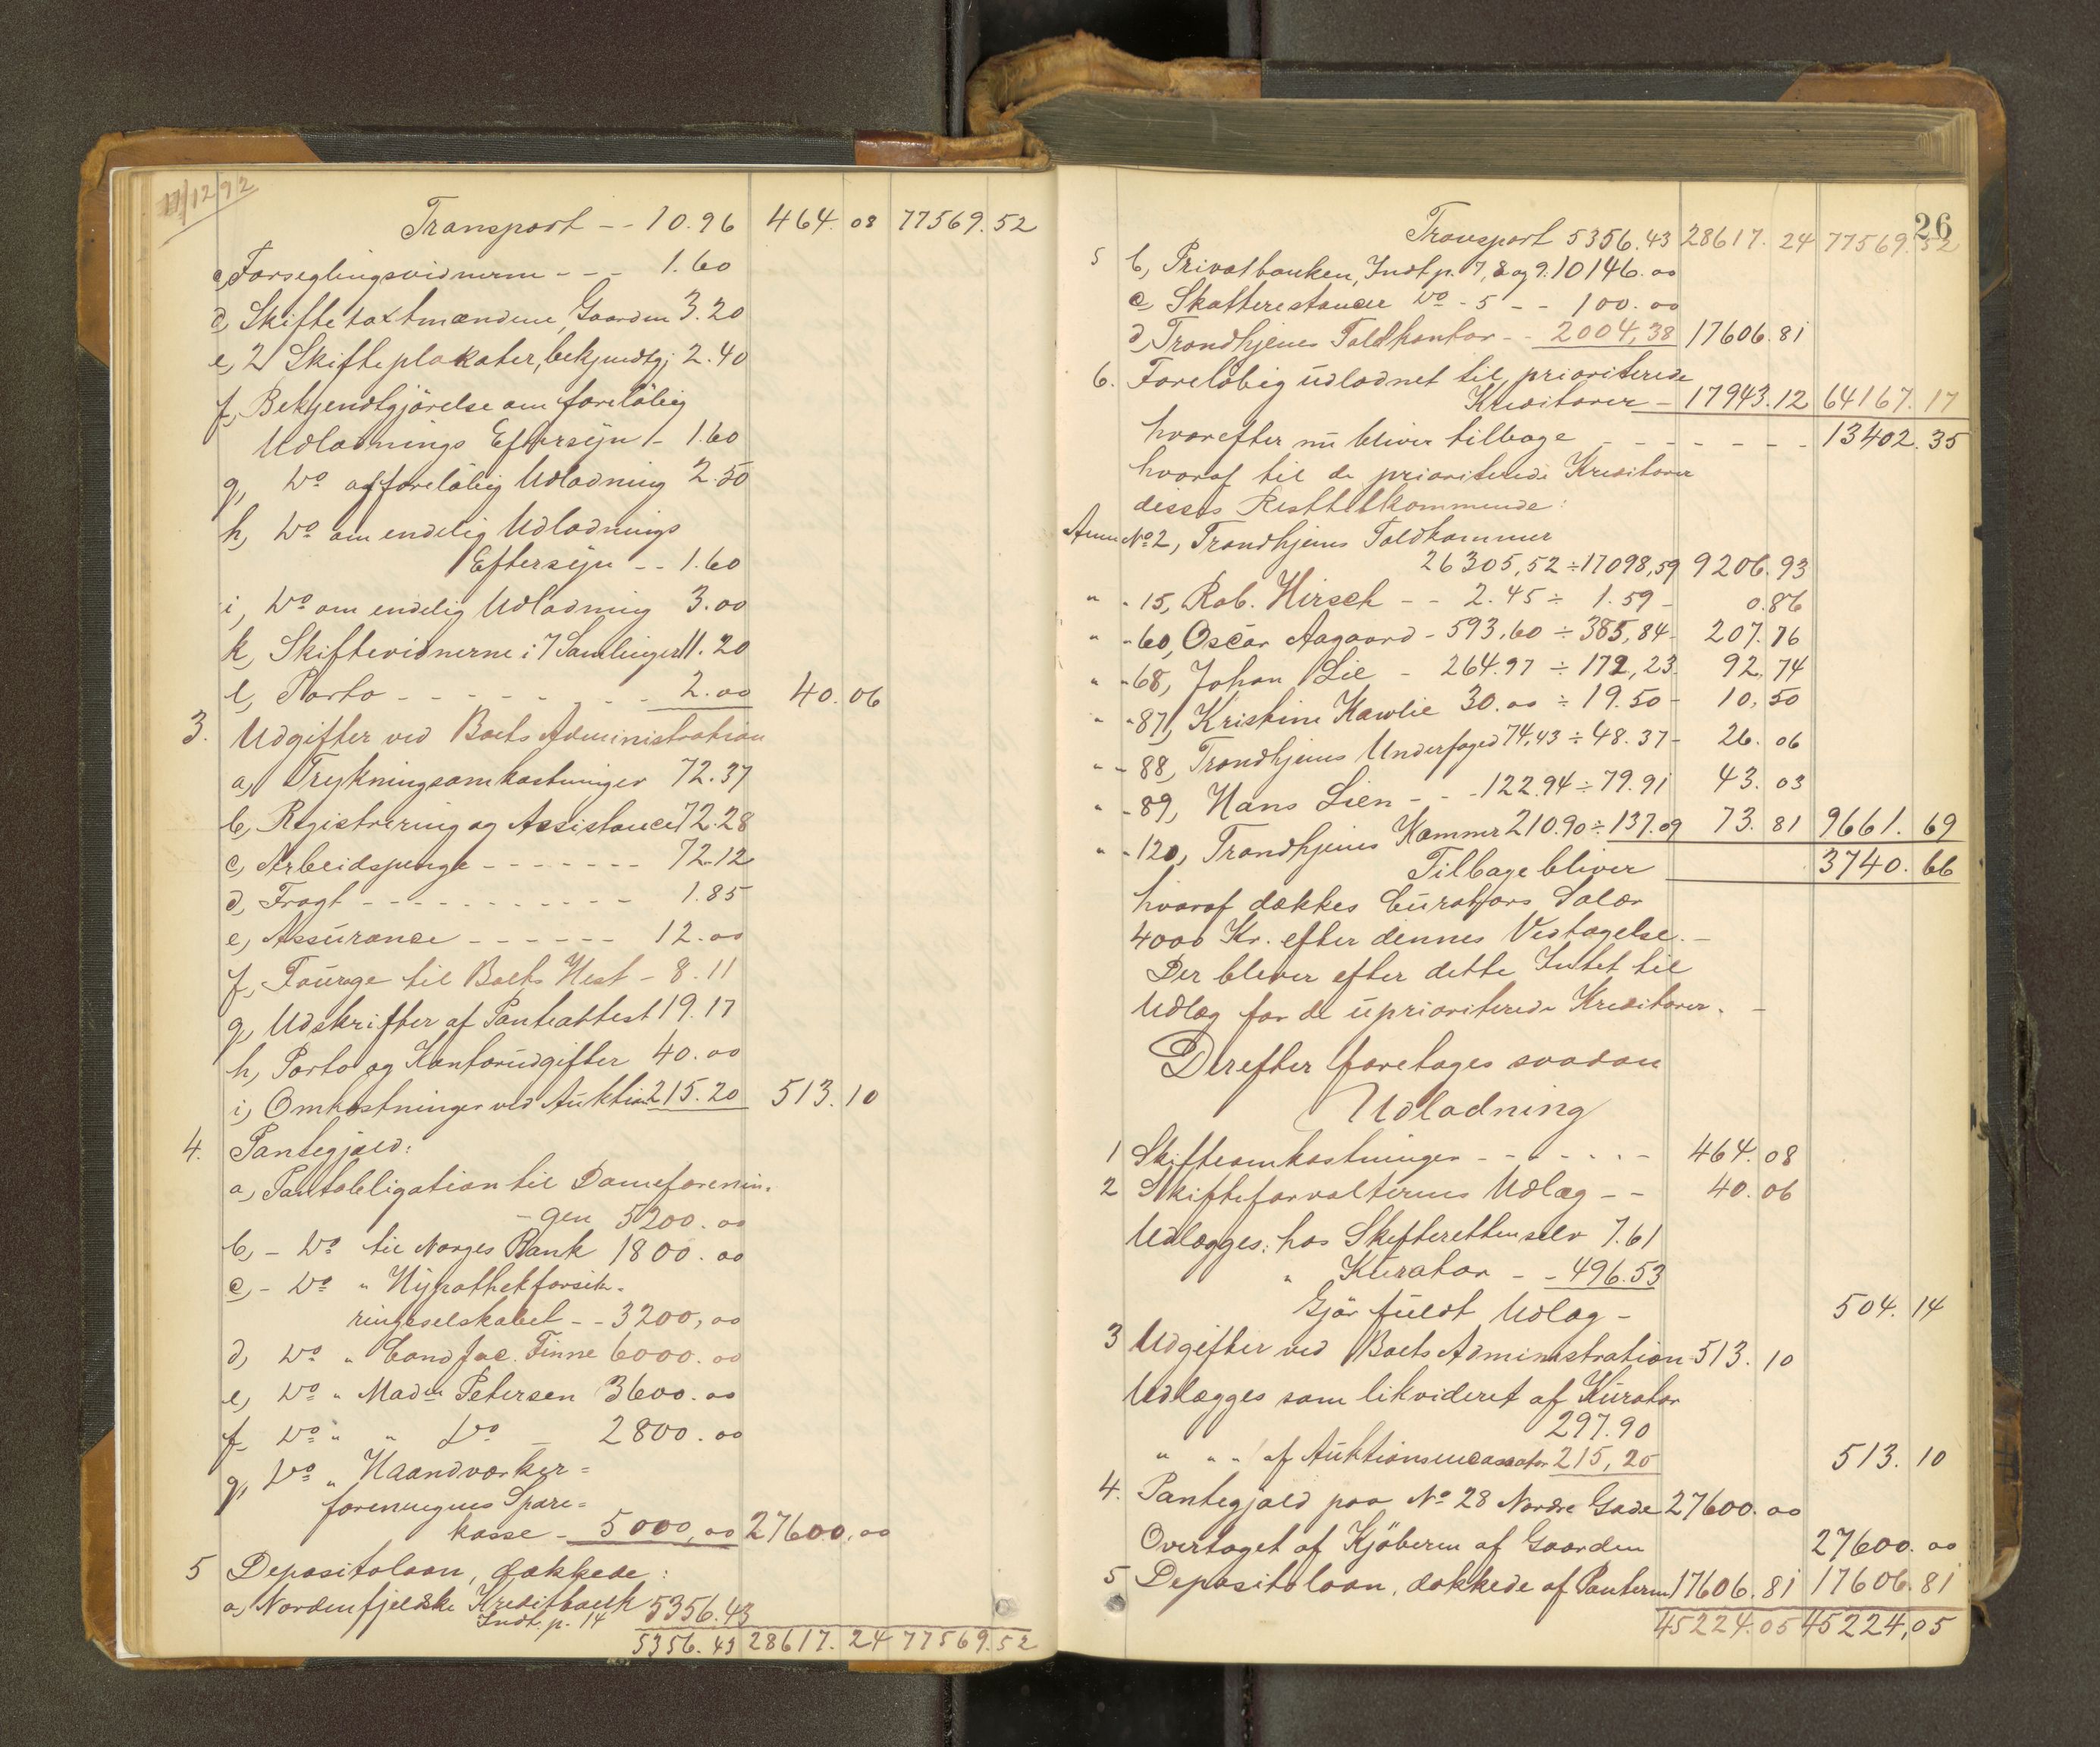 17/12 92
Transport -- 10.96 464.08 77569.52
c, Forseglingsvidnerne - - - 1.60
d, Skiftetaxtmændene, Gaarden 3.20
e, 2 Skifteplakater, bekjendtg; 2.40
f, Bekjendtgjörelse om forelöbig
Udlodnings Eftersyn - 1.60
g, Do af forelöbig Udlodning 2.50
h, Do om endelig Udlodnings
Eftersyn -- 1.60
i, Do om endelig Udlodning 3.00
k, Skiftevidnerne i 7 Samlinger 11.20
l, Porto - - - - - - - 2.00 40.06
3. Udgifter ved Boets Administration
a, Trykningsomkostninger 72.37
b, Registrering og Assistance 72.28
c, Arbeidspenge - - - - - - - 72.12
d, Fragt - - - - - - - - - - - 1.85
e, Assurance - - - - - - 12.00
f, Fourage til Boets Hest - 8.11
g, Udskrifter af Panteattest 19.17
h, Porto og Kontorudgifter 40.00
i, Omkostninger ved Auktion 215.20 513.10
4. Pantegjæld:
a, Pantobligation til Dameforenin-
-gen 5200.00
b, - Do til Norges Bank 1800.00
c, - Do " Hypothekforsik-
ringsselskabet -- 3200,00
d, Do " Cand jac. Finne 6000.00
e, Do " Madm Petersen 3600.00
f, Do " " Do - 2800.00
g, Do " Haandværker=
foreningens Spare=
kasse - 5000,00 27600,00
5 Depositolaan, dækkede:
a, Nordenfjeldske Kreditbank 5356.43
Indt. p. 14
5356.43 28617.24 77569.52
26
Transport 5356.43 28617.24 77569.52
5 b, Privatbanken, Indt p. 7, 8 og 9. 10146.00
c, Skatterestancer Do - 5 - - 100.00
d, Trondhjems Toldkontor - - 2004,38 17606.81
6. Forelöbig udlodnet til prioriterede
Kreditorer - 17943.12 64167.17
hvorefter nu bliver tilbage - - - - - - - 13402.35
hvoraf til de prioriterede Kreditorer
disses Resttilkommende:
Anm No 2, Trondhjems Toldkammer
26305,52 ÷ 17098,59 9206.93
" - 15, Rob. Hirsch - - 2.45 ÷ 1.59 - 0.86
" - 60, Oscar Aagaard - 593,60 ÷ 385,84 - 207.76
" - 68, Johan Lie - 264.97 ÷ 172,23. 92,74
" - 87, Kristine Kawlie 30.00 ÷ 19.50 - 10,50
" - 88, Trondhjems Underfoged 74,43 ÷ 48.37 - 26.06
" - 89, Hans Lien - - - 122.94 ÷ 79.91 43.03
" - 120, Trondhjems Kammer 210.90 ÷ 137.09 73.81 9661.69
Tilbage bliver 3740.66
hvoraf dækkes Curators Salær
4000 Kr. efter dennes Vedtagelse. -
Der bliver efter dette Intet til
Udlæg for de uprioriterede Kreditorer. -
Derefter foretages saadan
Udlodning
1 Skifteomkostninger - - - - - - - 464.08
2 Skifteforvalterens Udlæg - - 40.06
Udlægges: hos Skifteretten selv 7.61
" Kurator - - 496.53
Gjör fuldt Udlæg - 504.14
3 Udgifter ved Boets Administration 513.10
Udlægges som likvideret af Kurator
297.90
" " " af Auktionsincassator 215,20 513.10
4. Pantegjæld paa No 28 Nordre Gade 27600.00
Overtaget af Kjöberen af Gaarden 27600.00
5 Depositolaan, dækkede af Panterne 17606.81 17606.81
45224.05 45224,05